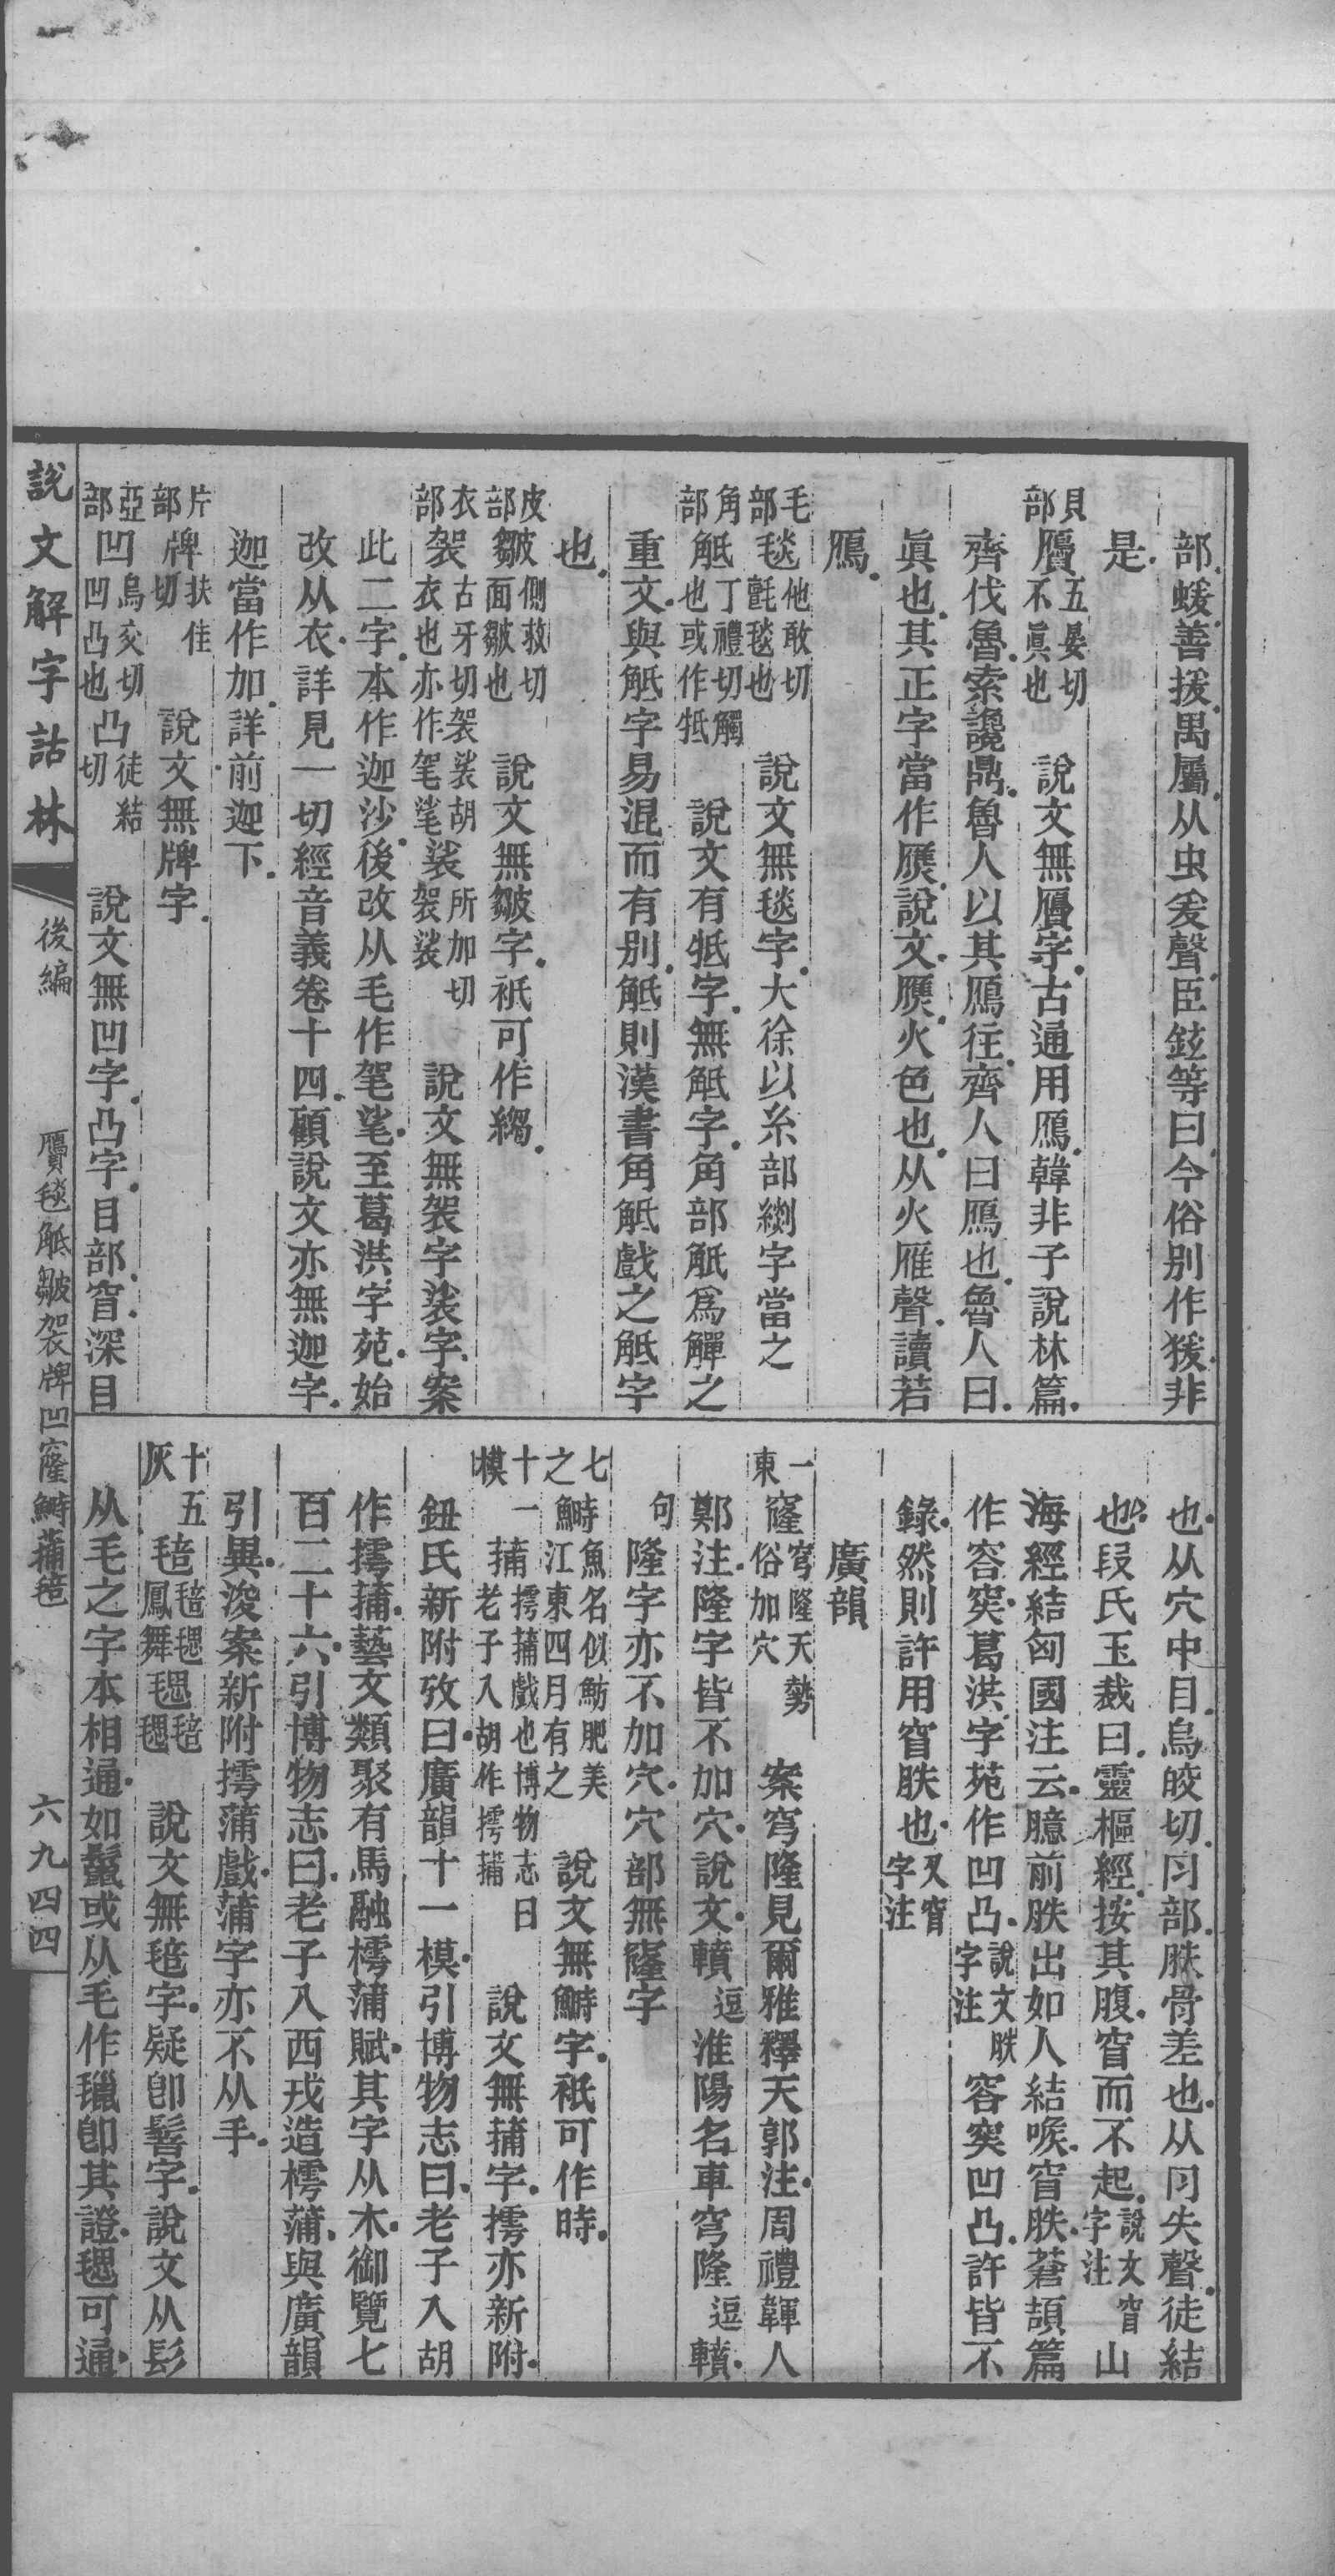 部蝯善援禺屬从虫爰聲臣鉉等曰今俗別作猨非
是
貝部 贗五晏切不眞也 說文無贗字古通用鴈韓非子說林篇
齊伐魯索讒鼎魯人以其鴈往齊人曰鴈也魯人曰
眞也其正字當作㷼說文㷼火色也从火雁聲讀若
鴈
毛部 毯他敢切氈毯也 說文無毯字大徐以糸部緂字當之
角部 觝丁禮切觸也或作牴 說文有牴字無觝字角部觗爲觶之
重文與觝字易混而有別觝則漢書角觝戲之觝字
也
皮部 皺側救切面皺也 說文無皺字祇可作縐
衣部 袈古牙切袈裟胡衣也亦作毠㲚裟所加切袈裟 說文無袈字裟字案
此二字本作迦沙後改从毛作毠㲚至葛洪字苑始
改从衣詳見一切經音義卷十四顧說文亦無迦字
迦當作加詳前迦下
片部 牌扶佳切 說文無牌字
亞部 凹烏交切凹凸也凸徒結切 說文無凹字凸字目部窅深目
也从穴中目烏皎切𠕎部胅骨差也从𠕎失聲徒結
也段氏玉裁曰靈樞經按其腹窅而不起說文窅字注山
海經結匈國注云臆前胅出如人結喉窅胅蒼頡篇
作容突葛洪字苑作凹凸說文胅字注容突凹凸許皆不
錄然則許用窅胅也又窅字注
廣韻
一東 窿穹隆天勢俗加穴 案穹隆見爾雅釋天郭注周禮韗人
鄭注隆字皆不加穴說文轒逗淮陽名車穹隆逗轒
句隆字亦不加穴穴部無窿字
七之 鰣魚名似魴肥美江東四月有之 說文無鰣字祇可作時
十一模 蒱摴蒱戲也博物志曰老子入胡作摴蒱 說文無蒱字摴亦新附
鈕氏新附攷曰廣韻十一模引博物志曰老子入胡
作摴蒱藝文類聚有馬融樗蒲賦其字从木御覽七
百二十六引博物志曰老子入西戎造樗蒲與廣韻
引異浚案新附摴蒲戲蒲字亦不从手
十五灰 毰毰毸鳳舞毸毰毸 說文無毰字疑卽髻字說文从髟
从毛之字本相通如鬣或从毛作㲱卽其證毸可通
說文解字詁林
後編
贗毯觝皺袈牌凹窿鰣蒱毰
六九四四